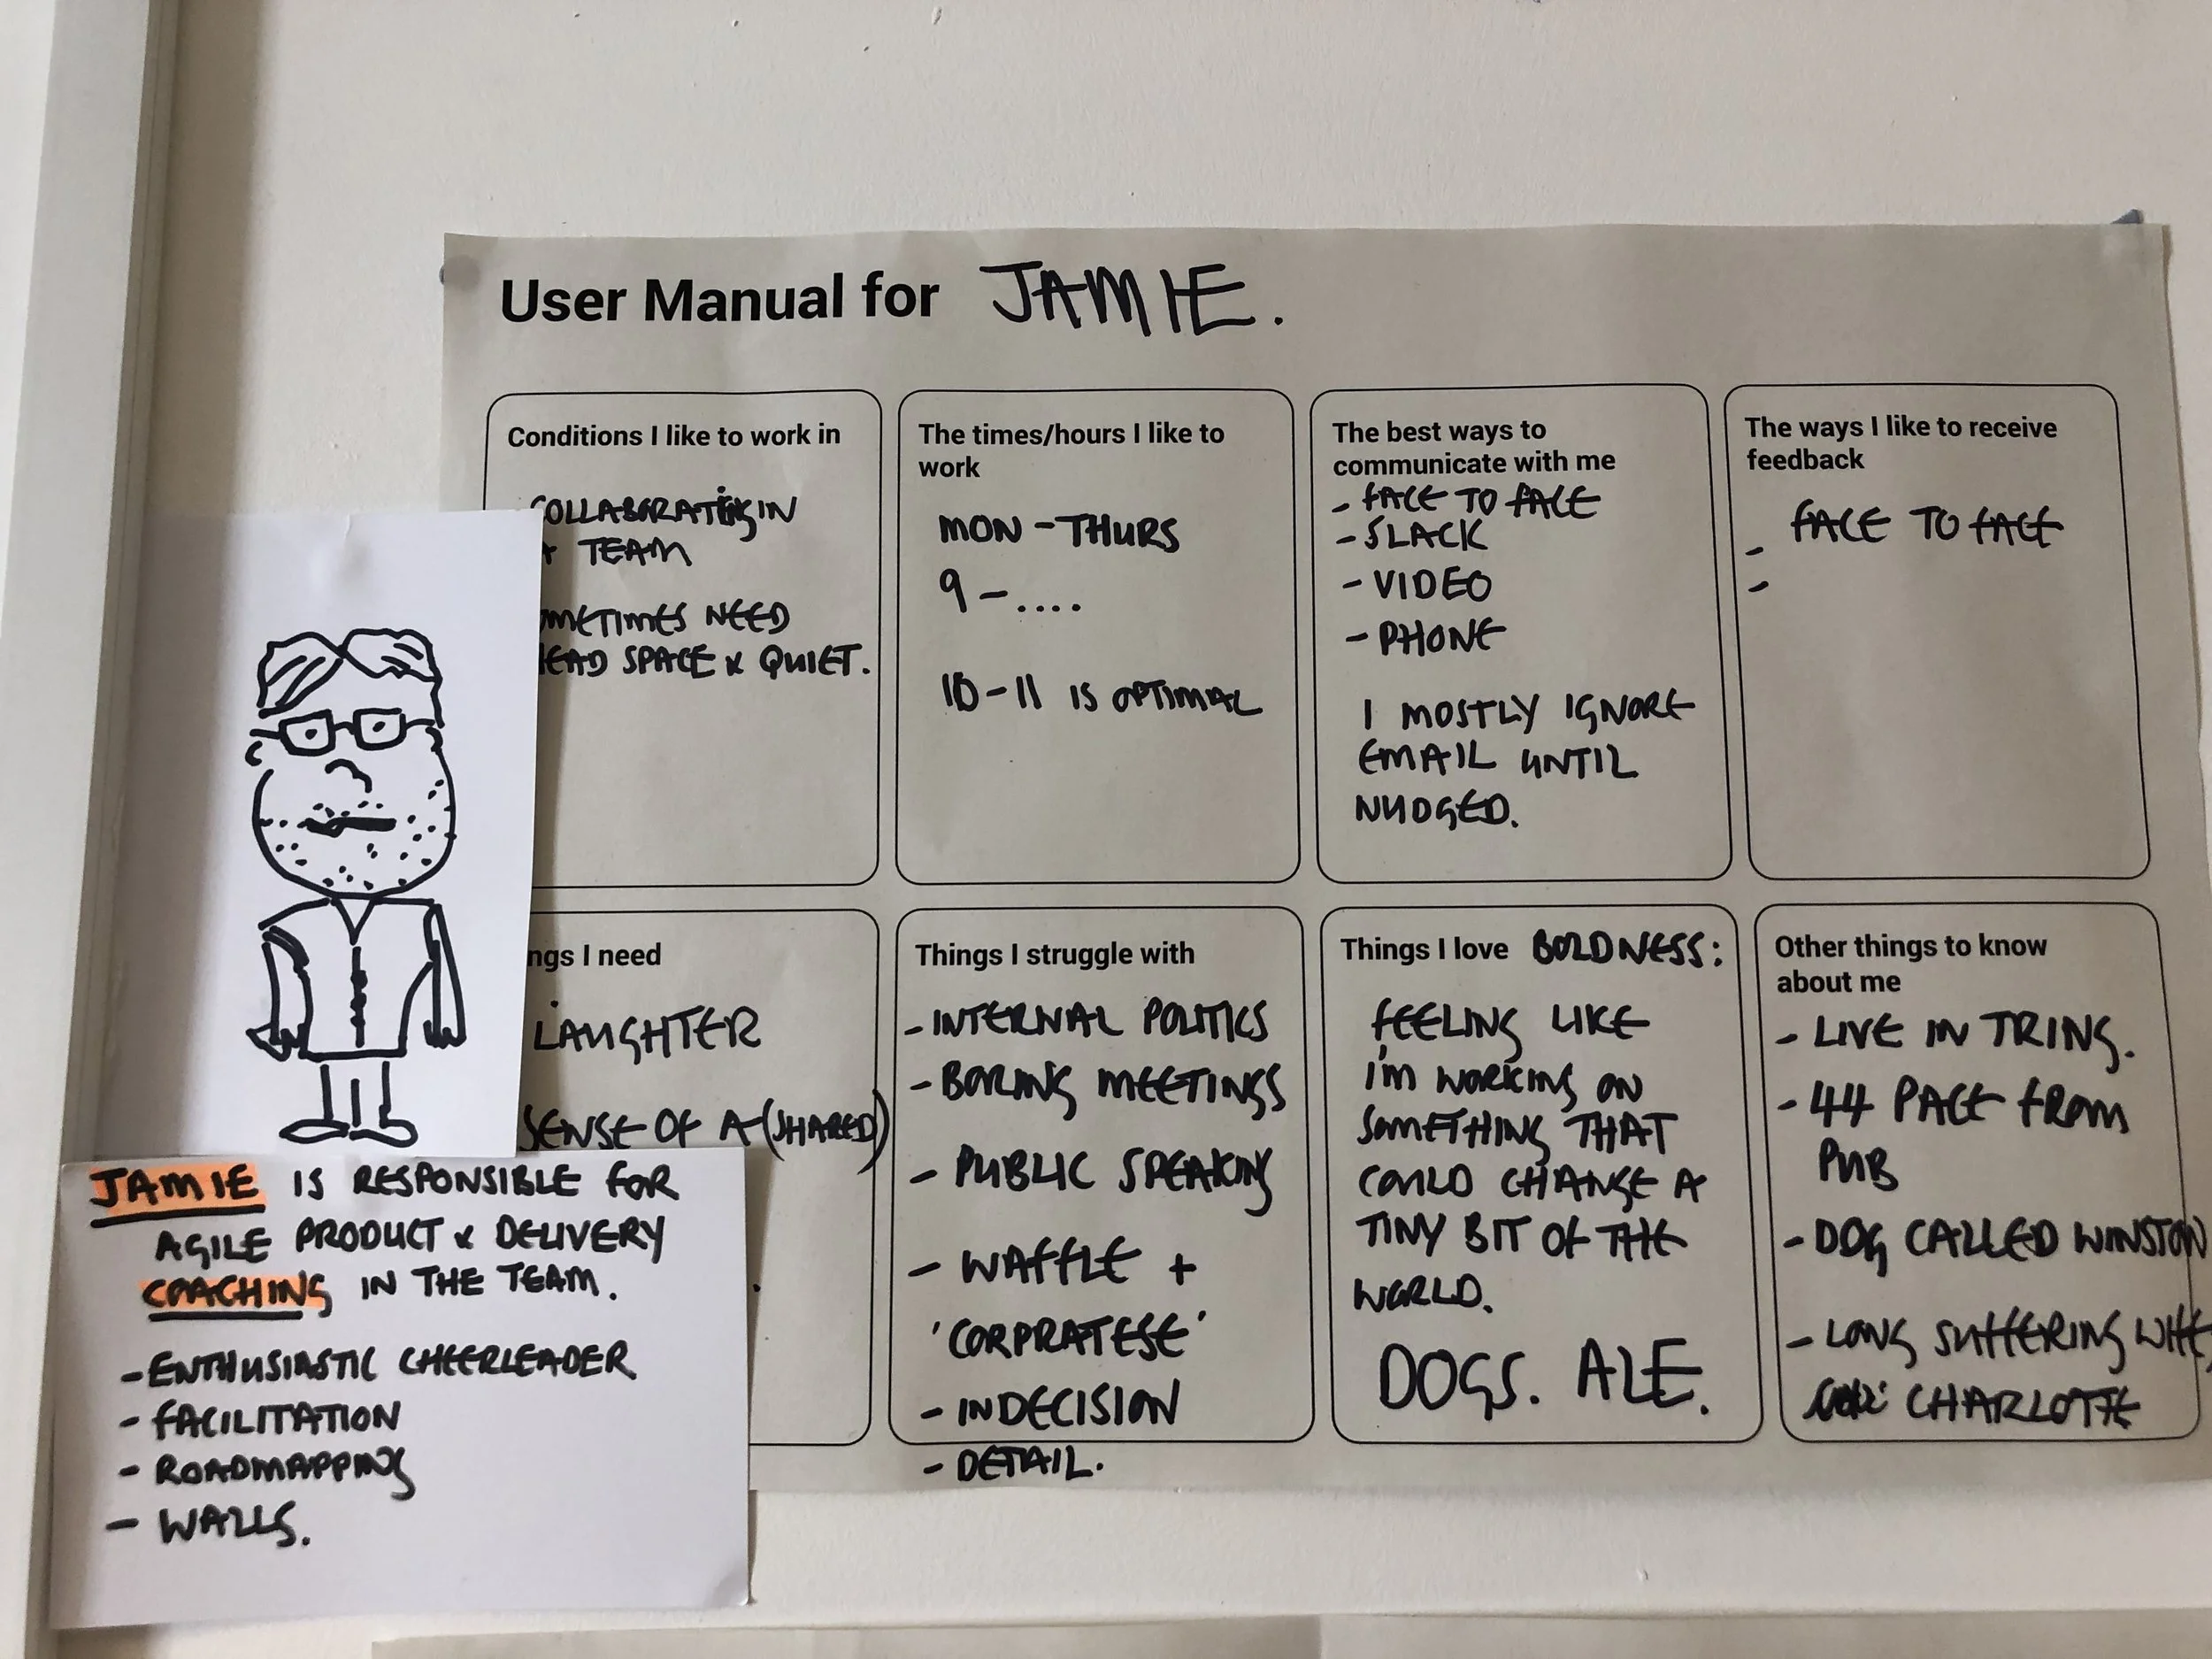 User Manual for JAMIE.
Conditions I like to work in
COLLABORATING IN
A TEAM
OMETIMES NEED
EAD SPACE & QUIET.
The times/hours I like to
work
MON - THURS
9 - ....
10 - 11 IS OPTIMAL
The best ways to
communicate with me
- FACE TO FACE
- SLACK
- VIDEO
- PHONE
I MOSTLY IGNORE
EMAIL UNTIL
NUDGED.
The ways I like to receive
feedback
- FACE TO FACE
-
ngs I need
LAUGHTER
SENSE OF A (SHARED)
Things I struggle with
- INTERNAL POLITICS
- BORING MEETINGS
- PUBLIC SPEAKING
- WAFFLE +
'CORPRATESE'
- INDECISION
- DETAIL.
Things I love BOLDNESS:
FEELING LIKE
I'M WORKING ON
SOMETHING THAT
COULD CHANGE A
TINY BIT OF THE
WORLD.
DOGS. ALE.
Other things to know
about me
- LIVE IN TRING.
- 44 PACE FROM
PUB
- DOG CALLED WINSTON
- LONG SUFFERING WIFE,
CHARLOTTE
JAMIE IS RESPONSIBLE FOR
AGILE PRODUCT & DELIVERY
COACHING IN THE TEAM.
- ENTHUSIASTIC CHEERLEADER
- FACILITATION
- ROADMAPPING
- WALLS.